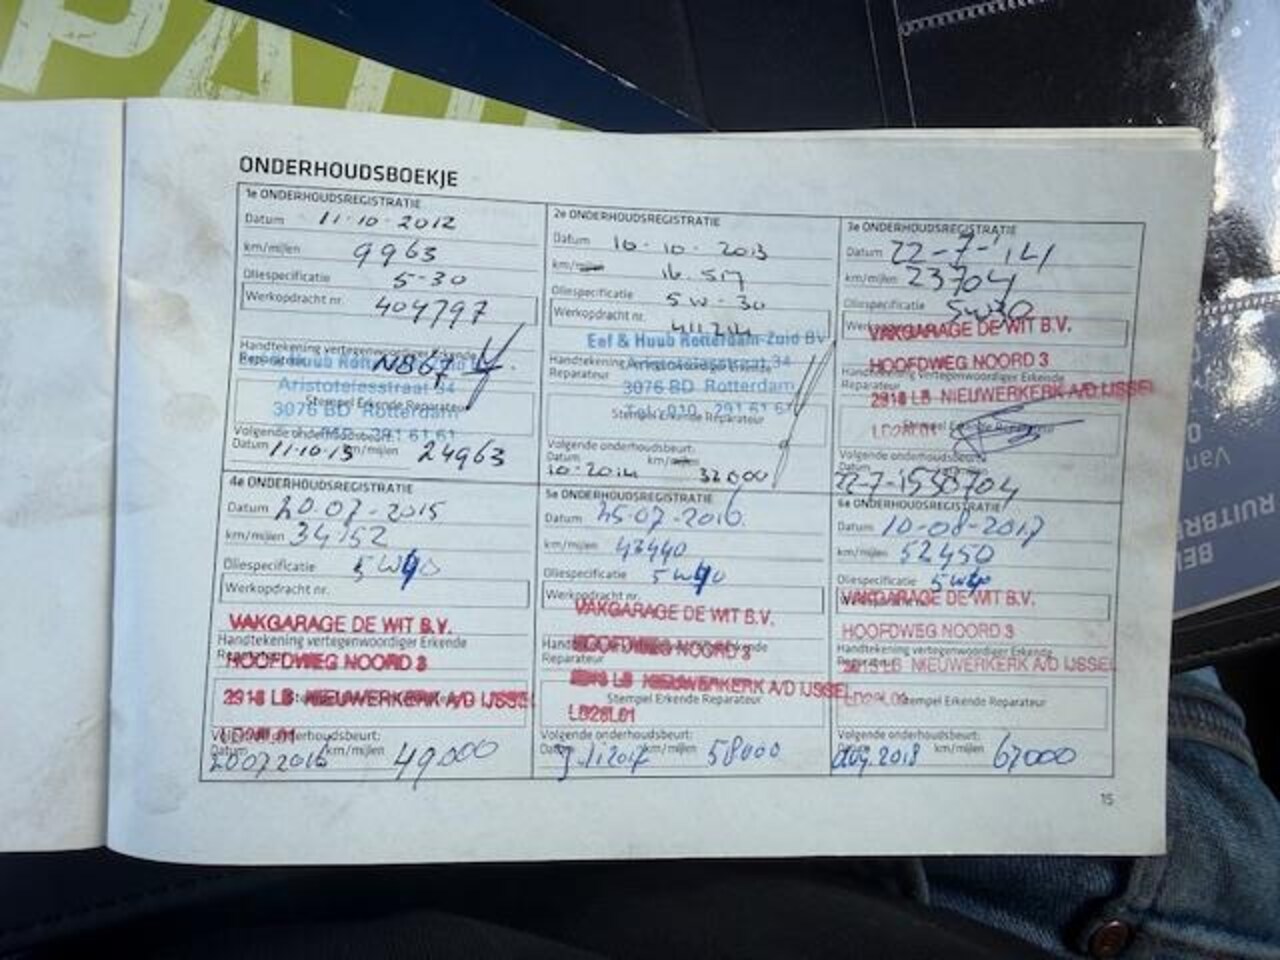 ONDERHOUDSBOEKJE
1e ONDERHOUDSREGISTRATIE
Datum 11-10-2012
km/mijlen 9963
Oliespecificatie 5-30
Werkopdracht nr. 404797
Handtekening vertegenwoordiger Erkende
Reparateur
Aristotelesstraat 34
Stempel Erkende Reparateur
3076 BD Rotterdam
Volgende onderhoudsbeurt:
Datum 11-10-13 km/mijlen 24963
2e ONDERHOUDSREGISTRATIE
Datum 10-10-2013
km/mijlen 16.517
Oliespecificatie 5W-30
Werkopdracht nr. 411214
Eef & Huub Rotterdam-Zuid BV
Handtekening
Aristotelesstraat 34
Reparateur
3076 BD Rotterdam
Stempel Erkende Reparateur
Tel: 010 - 291 61 61
Volgende onderhoudsbeurt:
Datum 10-2014 km/ 32000
3e ONDERHOUDSREGISTRATIE
Datum 22-7-'14
km/mijlen 23704
Oliespecificatie 5W30
VAKGARAGE DE WIT B.V.
HOOFDWEG NOORD 3
Handtekening vertegenwoordiger Erkende
Reparateur
2913 LB NIEUWERKERK A/D IJSSEL
Stempel Erkende Reparateur
Volgende onderhoudsbeurt:
Datum 22-7-15 38704
4e ONDERHOUDSREGISTRATIE
Datum 20-07-2015
km/mijlen 34152
Oliespecificatie 5W40
Werkopdracht nr.
VAKGARAGE DE WIT B.V.
Handtekening vertegenwoordiger Erkende
Reparateur
HOOFDWEG NOORD 3
2913 LB NIEUWERKERK A/D IJSSEL
Volgende onderhoudsbeurt:
Datum 20072016 km/mijlen 49000
5e ONDERHOUDSREGISTRATIE
Datum 25-07-2016
km/mijlen 43440
Oliespecificatie 5W40
Werkopdracht nr.
VAKGARAGE DE WIT B.V.
HOOFDWEG NOORD 3
Reparateur
2913 LB NIEUWERKERK A/D IJSSEL
Stempel Erkende Reparateur
LD28L01
Volgende onderhoudsbeurt:
km/mijlen 58000
6e ONDERHOUDSREGISTRATIE
Datum 10-08-2017
km/mijlen 52450
Oliespecificatie 5W40
VAKGARAGE DE WIT B.V.
HOOFDWEG NOORD 3
Handtekening vertegenwoordiger Erkende
Reparateur
NIEUWERKERK A/D IJSSEL
Stempel Erkende Reparateur
Volgende onderhoudsbeurt:
aug. 2018 km/mijlen 67000
15